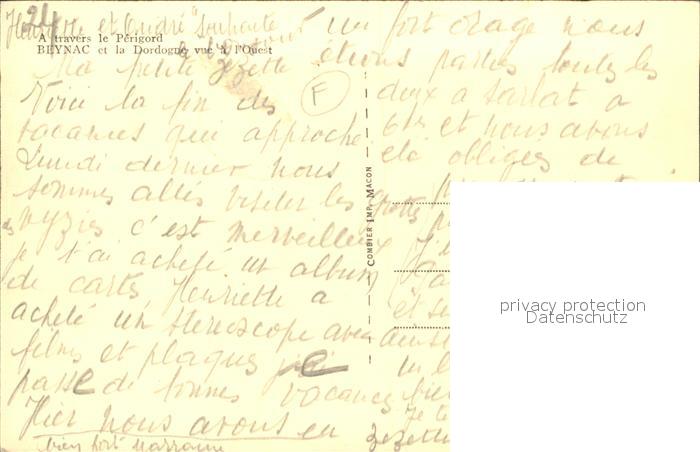 Henri et André souhaite
A travers le Périgord
BEYNAC et la Dordogne vue à l'Ouest
Ma petite Zezette
Voici la fin des
vacances qui approche
Lundi dernier nous
sommes allés visiter les grottes
es
yzies c'est merveilleux
je t'ai acheté un album
de cartes, Henriette a
acheté un stereoscope avec
films et plaques
passe de bonnes vacances
Hier nous avons eu
bien fort Marraine
F
COMBIER IMP. MACON
un fort orage nous
étions parties toutes les
deux a Sarlat a
6h et nous avons
été obligées de
et se
ainsi
un
bien
Je te
Zezette
privacy protection
Datenschutz